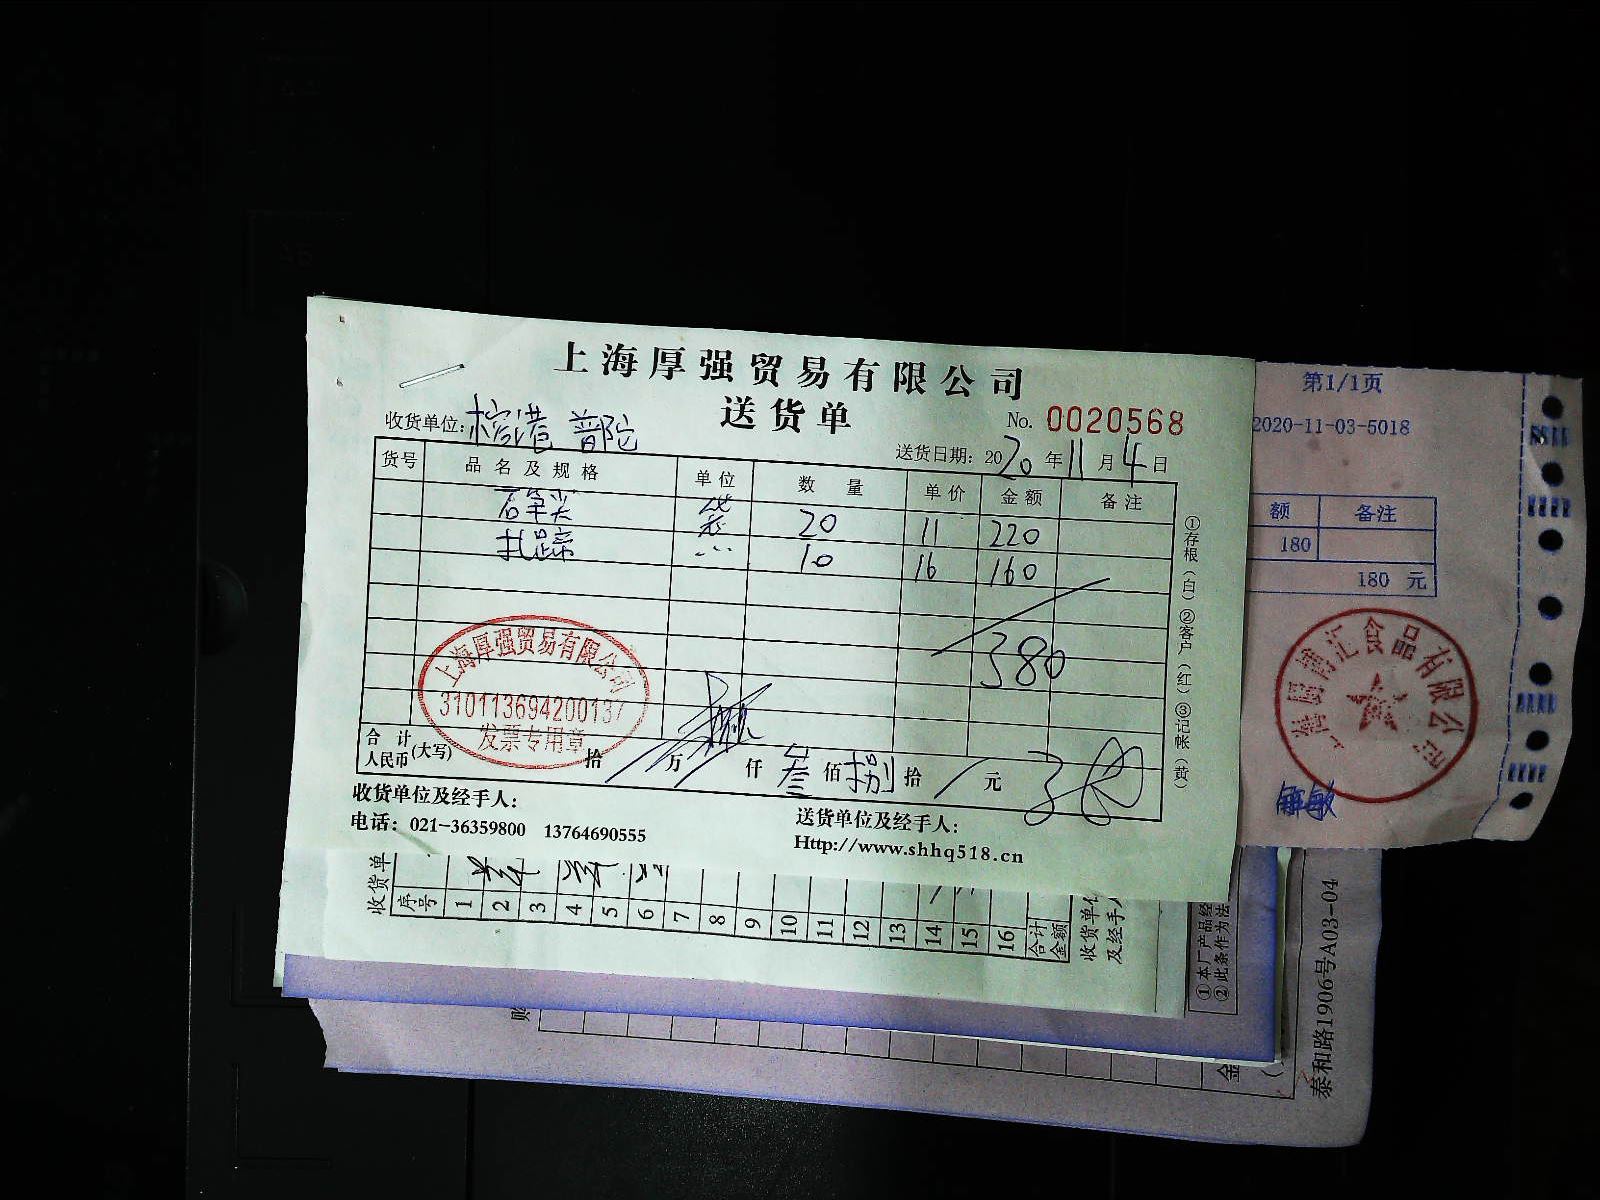 上海厚强贸易有限公司
送货单
No. 0020568
收货单位: 檬港 普陀
送货日期: 2020年11月4日
货号 品名及规格 单位 数量 单价 金额 备注
石笋尖 袋 20 11 220
扎蹄 〃 10 16 160
380
上海厚强贸易有限公司
310113694200137
发票专用章
合计
人民币(大写) 拾 万 仟 叁 佰 捌 拾 元 380
收货单位及经手人:
送货单位及经手人:
电话: 021-36359800 13764690555
Http://www.shhq518.cn
①存根(白)②客户(红)③记帐(黄)
第1/1页
2020-11-03-5018
额 备注
180
180 元
食品有限公司
收货单
序号 1 2 3 4 5 6 7 8 9 10 11 12 13 14 15 16 合计金额
收货单位及经手人
①本厂产品经
②此条作为法
购
金
泰和路1906号A03-04